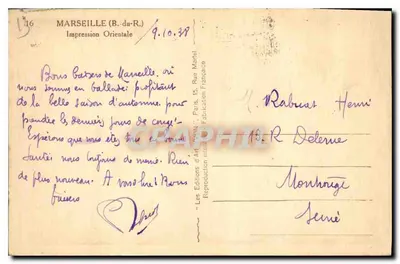 16 MARSEILLE (B.-du-R.)
Impression Orientale
9.10.38
Bons baisers de Marseille, où
nous sommes en ballade, profitant
de la belle saison d'automne pour
prendre les derniers jours de congé.
Espérons que vous êtes en bonne
santé nous
Rien
de plus nouveau. A Bons
baisers
Henri
R Delerue
Montrouge
Seine
Les Editions d'Art Paris, 15, Rue Martel
Reproduction Fabrication Française